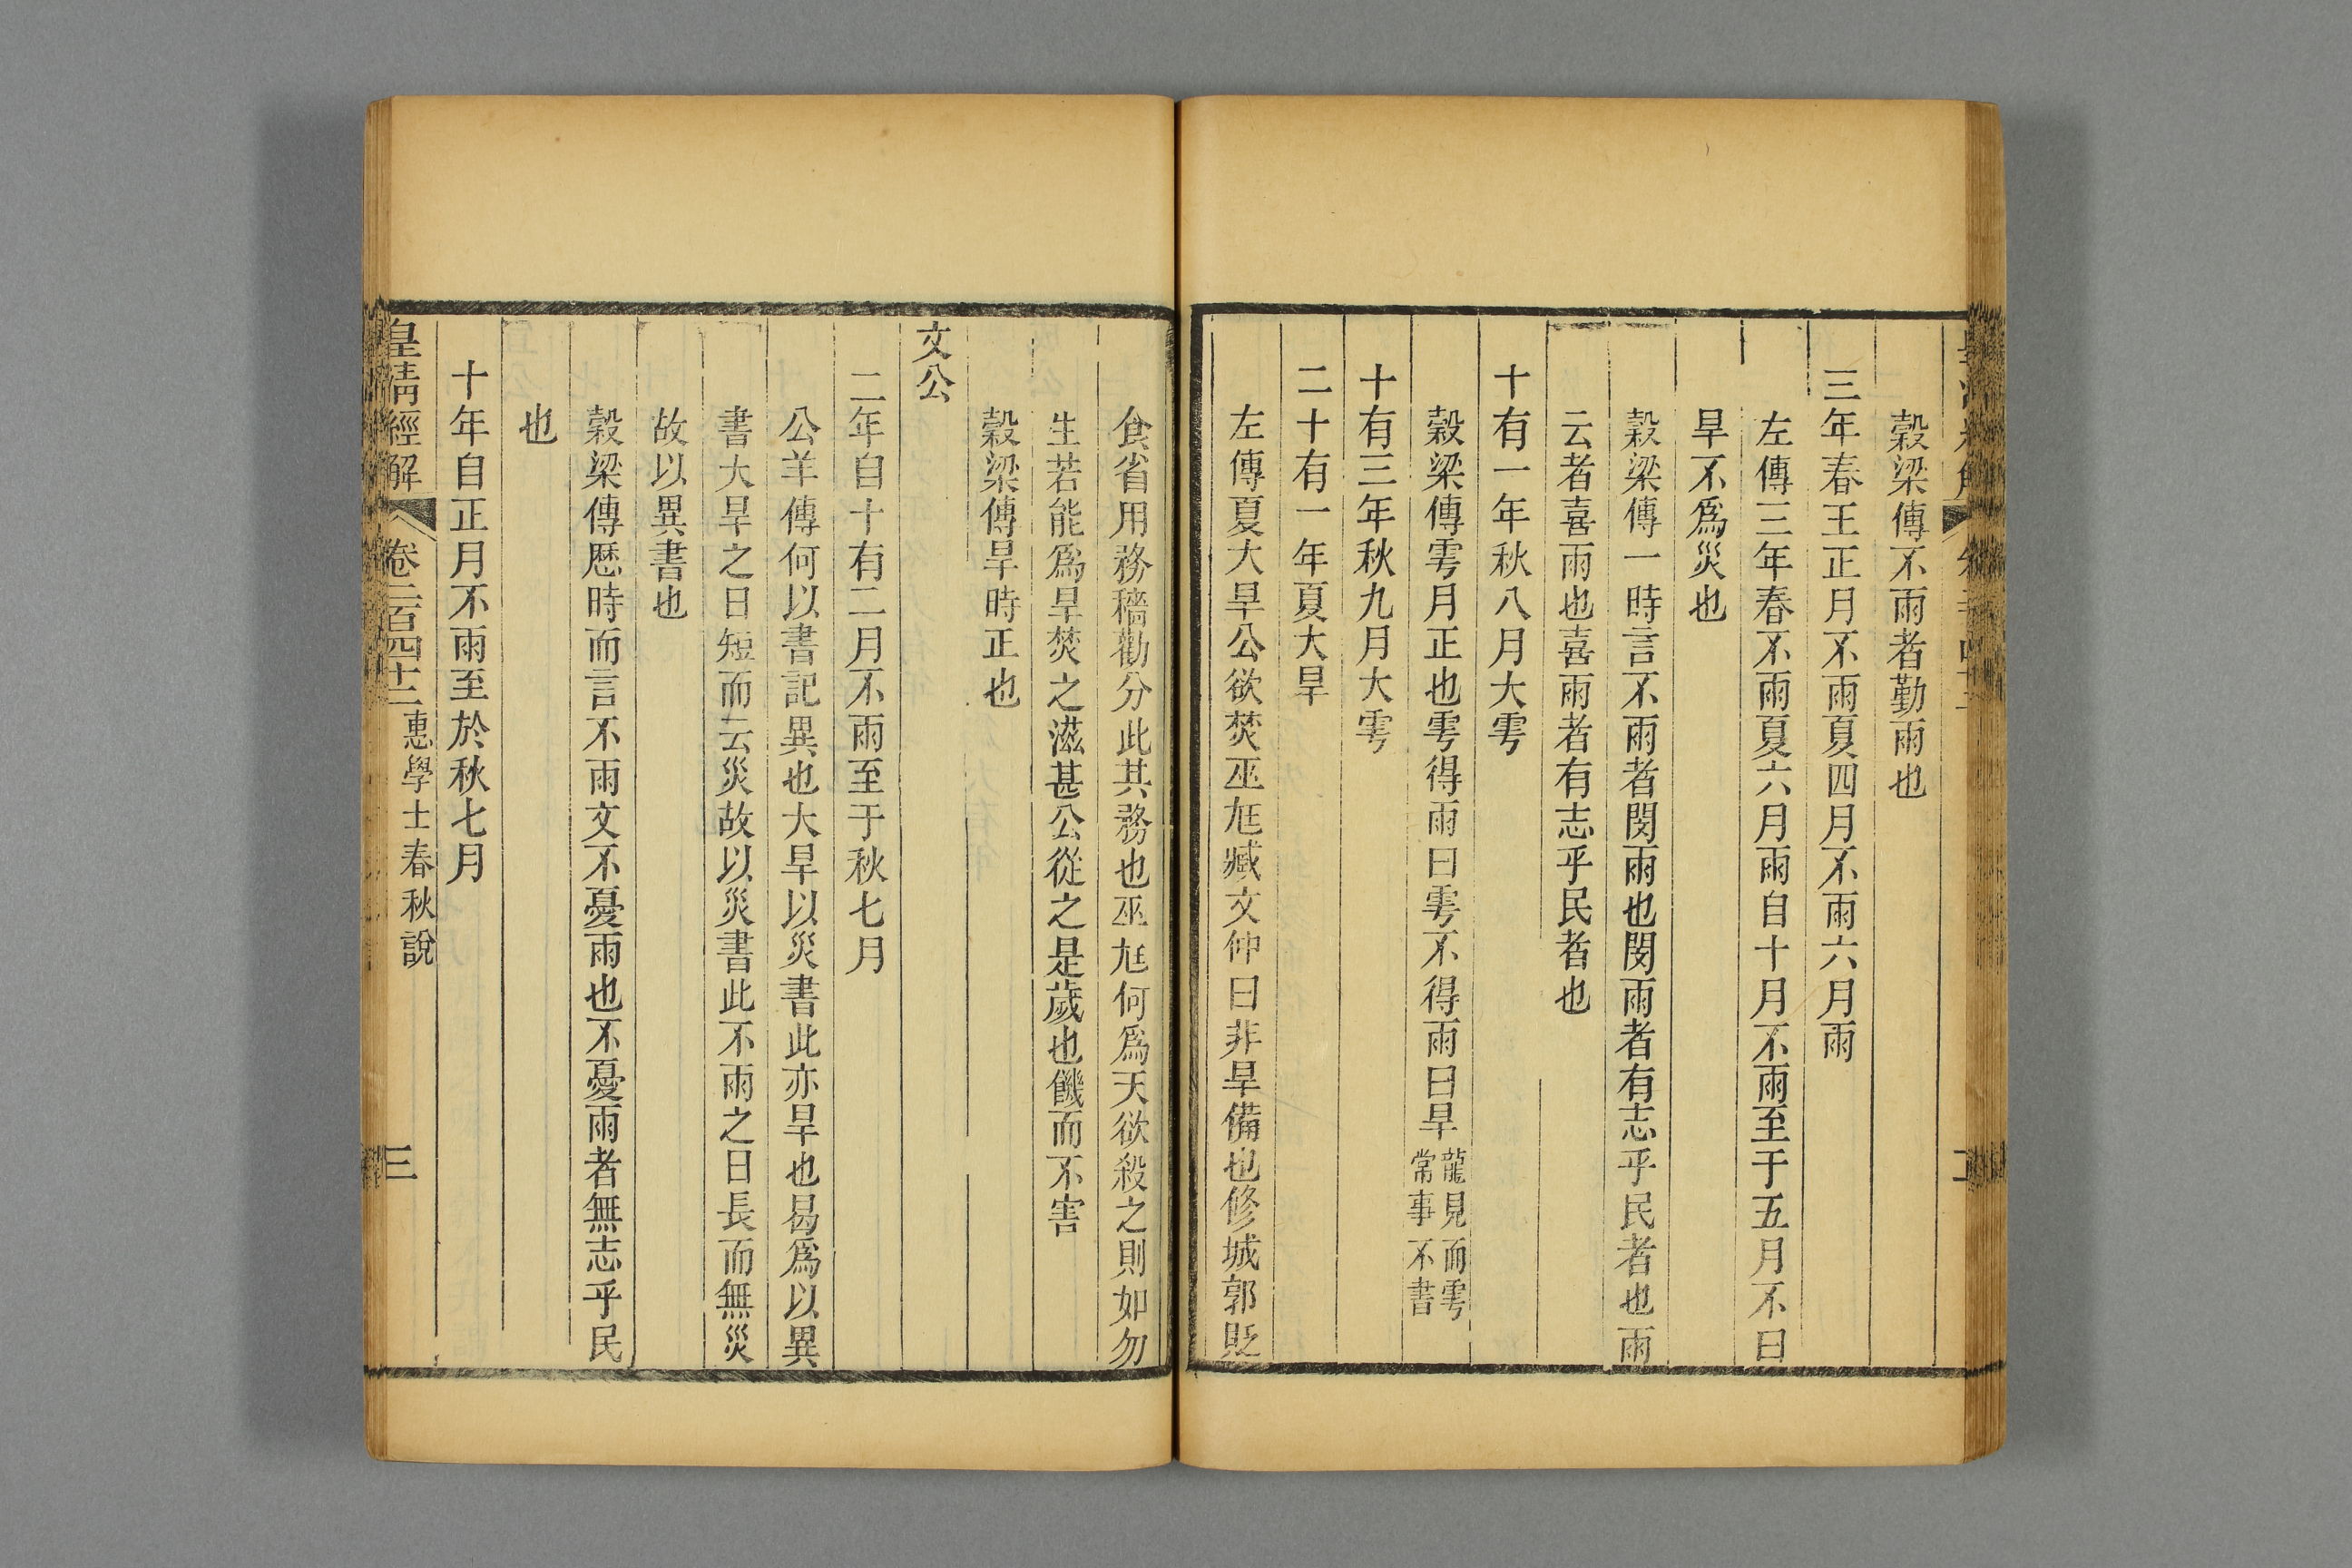 穀梁傳不雨者勤雨也
三年春王正月不雨夏四月不雨六月雨
左傳三年春不雨夏六月雨自十月不雨至于五月不曰
旱不爲災也
穀梁傳一時言不雨者閔雨也閔雨者有志乎民者也雨
云者喜雨也喜雨者有志乎民者也
十有一年秋八月大雩
穀梁傳雩月正也雩得雨曰雩不得雨曰旱龍見而雩常事不書
十有三年秋九月大雩
二十有一年夏大旱
左傳夏大旱公欲焚巫尫臧文仲曰非旱備也修城郭貶
食省用務穡勸分此其務也巫尫何爲天欲殺之則如勿
生若能爲旱焚之滋甚公從之是歲也饑而不害
穀梁傳旱時正也
文公
二年自十有二月不雨至于秋七月
公羊傳何以書記異也大旱以災書此亦旱也曷爲以異
書大旱之日短而云災故以災書此不雨之日長而無災
故以異書也
穀梁傳歷時而言不雨文不憂雨也不憂雨者無志乎民
也
十年自正月不雨至於秋七月
皇清經解 卷二百四十二 惠學士春秋說 三